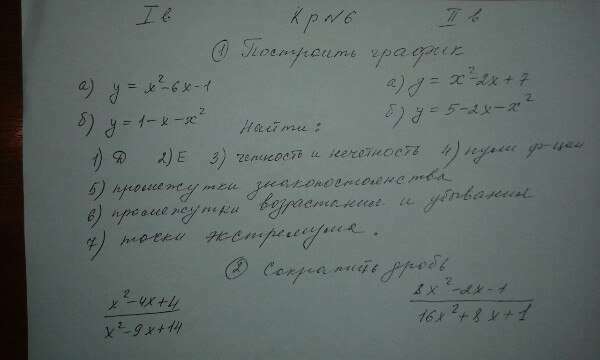 I в Кр №6 II в
① Построить график
а) y = x²-6x-1 а) y = x²-2x+7
б) y = 1-x-x² б) y = 5-2x-x²
Найти:
1) D 2) E 3) четность и нечетность 4) нули ф-ции
5) промежутки знакопостоянства
6) промежутки возрастания и убывания
7) точки экстремума.
② Сократить дробь
x²-4x+4 8x²-2x-1
x²-9x+14 16x²+8x+1